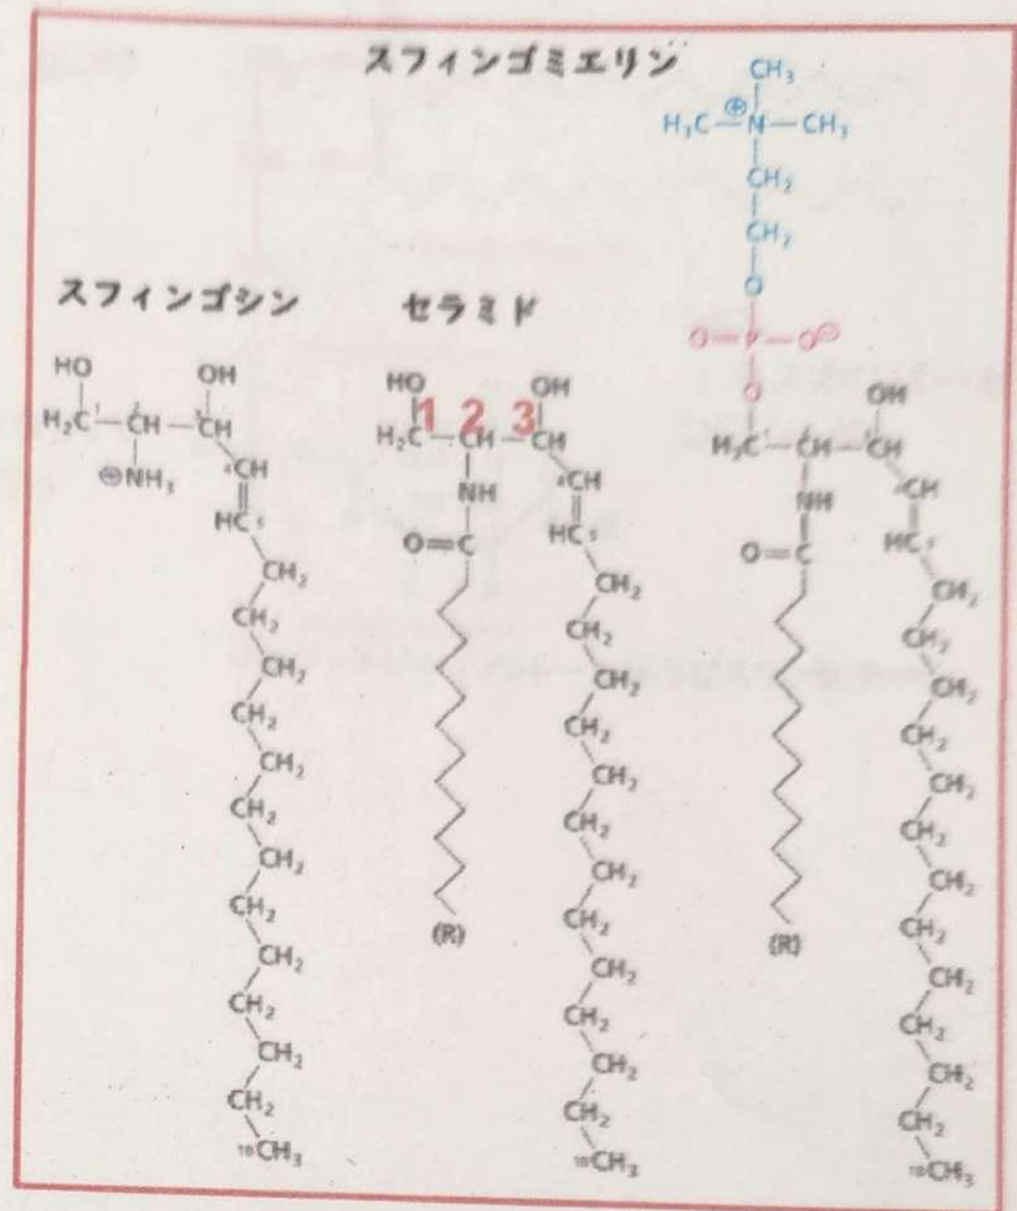 スフィンゴミエリン
CH₃
H₃C—N—CH₃
⊕
CH₂
CH₂
O
O=P—O⊖
O
スフィンゴシン
HO
OH
H₂C¹—²CH—³CH
⊕NH₃
⁴CH
HC⁵
CH₂
CH₂
CH₂
CH₂
CH₂
CH₂
CH₂
CH₂
CH₂
CH₂
CH₂
CH₂
¹⁸CH₃
セラミド
HO
OH
1 2 3
H₂C—CH—CH
NH
O=C
⁴CH
HC⁵
CH₂
CH₂
CH₂
CH₂
CH₂
CH₂
CH₂
CH₂
CH₂
CH₂
CH₂
CH₂
¹⁸CH₃
(R)
OH
H₂C—CH—CH
NH
O=C
⁴CH
HC⁵
CH₂
CH₂
CH₂
CH₂
CH₂
CH₂
CH₂
CH₂
CH₂
CH₂
CH₂
CH₂
¹⁸CH₃
(R)